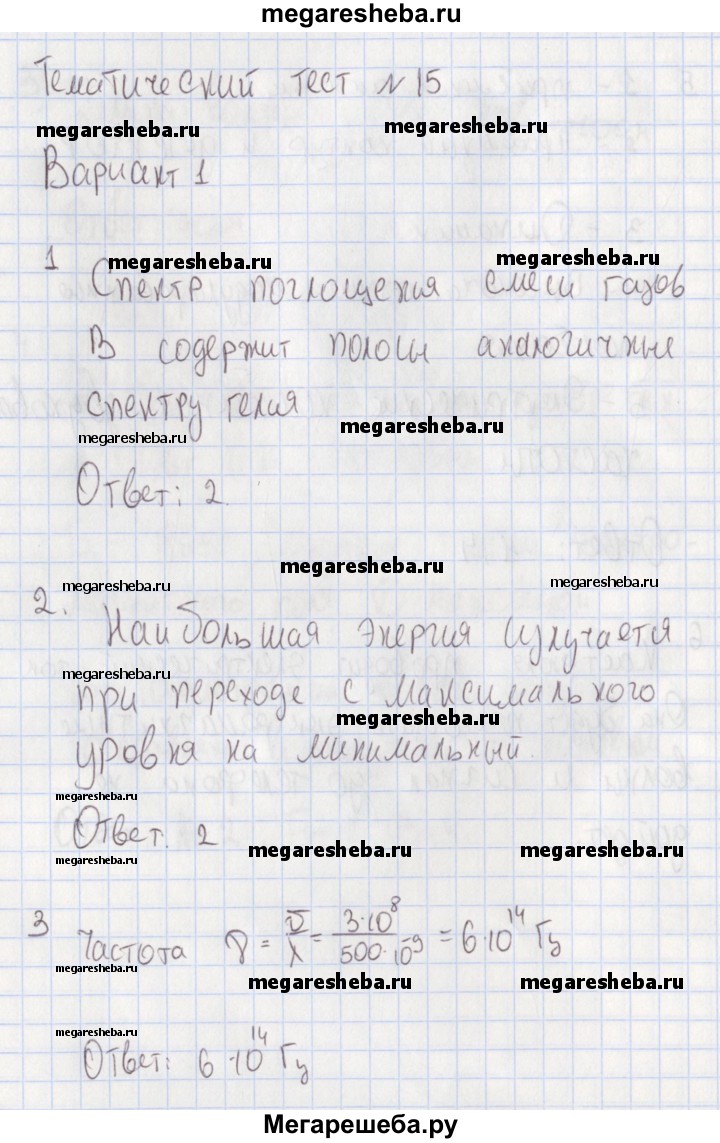 megaresheba.ru
Тематический тест №15
megaresheba.ru megaresheba.ru
Вариант 1
1 megaresheba.ru megaresheba.ru
Спектр поглощения смеси газов
В содержит полосы аналогичные
спектру гелия
megaresheba.ru megaresheba.ru
Ответ: 2
megaresheba.ru megaresheba.ru megaresheba.ru
2. Наибольшая энергия излучается
megaresheba.ru
при переходе с максимального
megaresheba.ru
уровня на минимальный.
megaresheba.ru
Ответ. 2
megaresheba.ru megaresheba.ru megaresheba.ru
3 Частота ν = υ/λ = 3·10⁸/500·10⁻⁹ = 6·10¹⁴ Гц
megaresheba.ru megaresheba.ru megaresheba.ru
megaresheba.ru
Ответ: 6·10¹⁴ Гц
Мегарешеба.ру